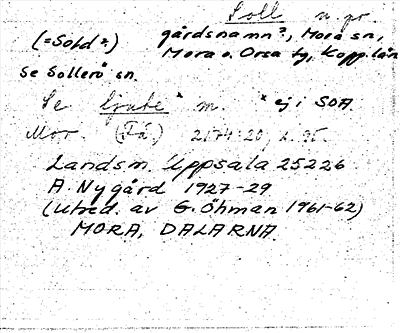 Soll n. pr.
(=Sold?) gårdsnamn?, Mora sn,
Mora o. Orsa tg, Kopp. län
Se Sollerö sn.
Se ljute * m. * ej i SOA.
Mor. (Få) 2174:20, s. 95.
Landsm. Uppsala 25226
A. Nygård 1927-29
(Utred. av G. Öhman 1961-62)
MORA, DALARNA.